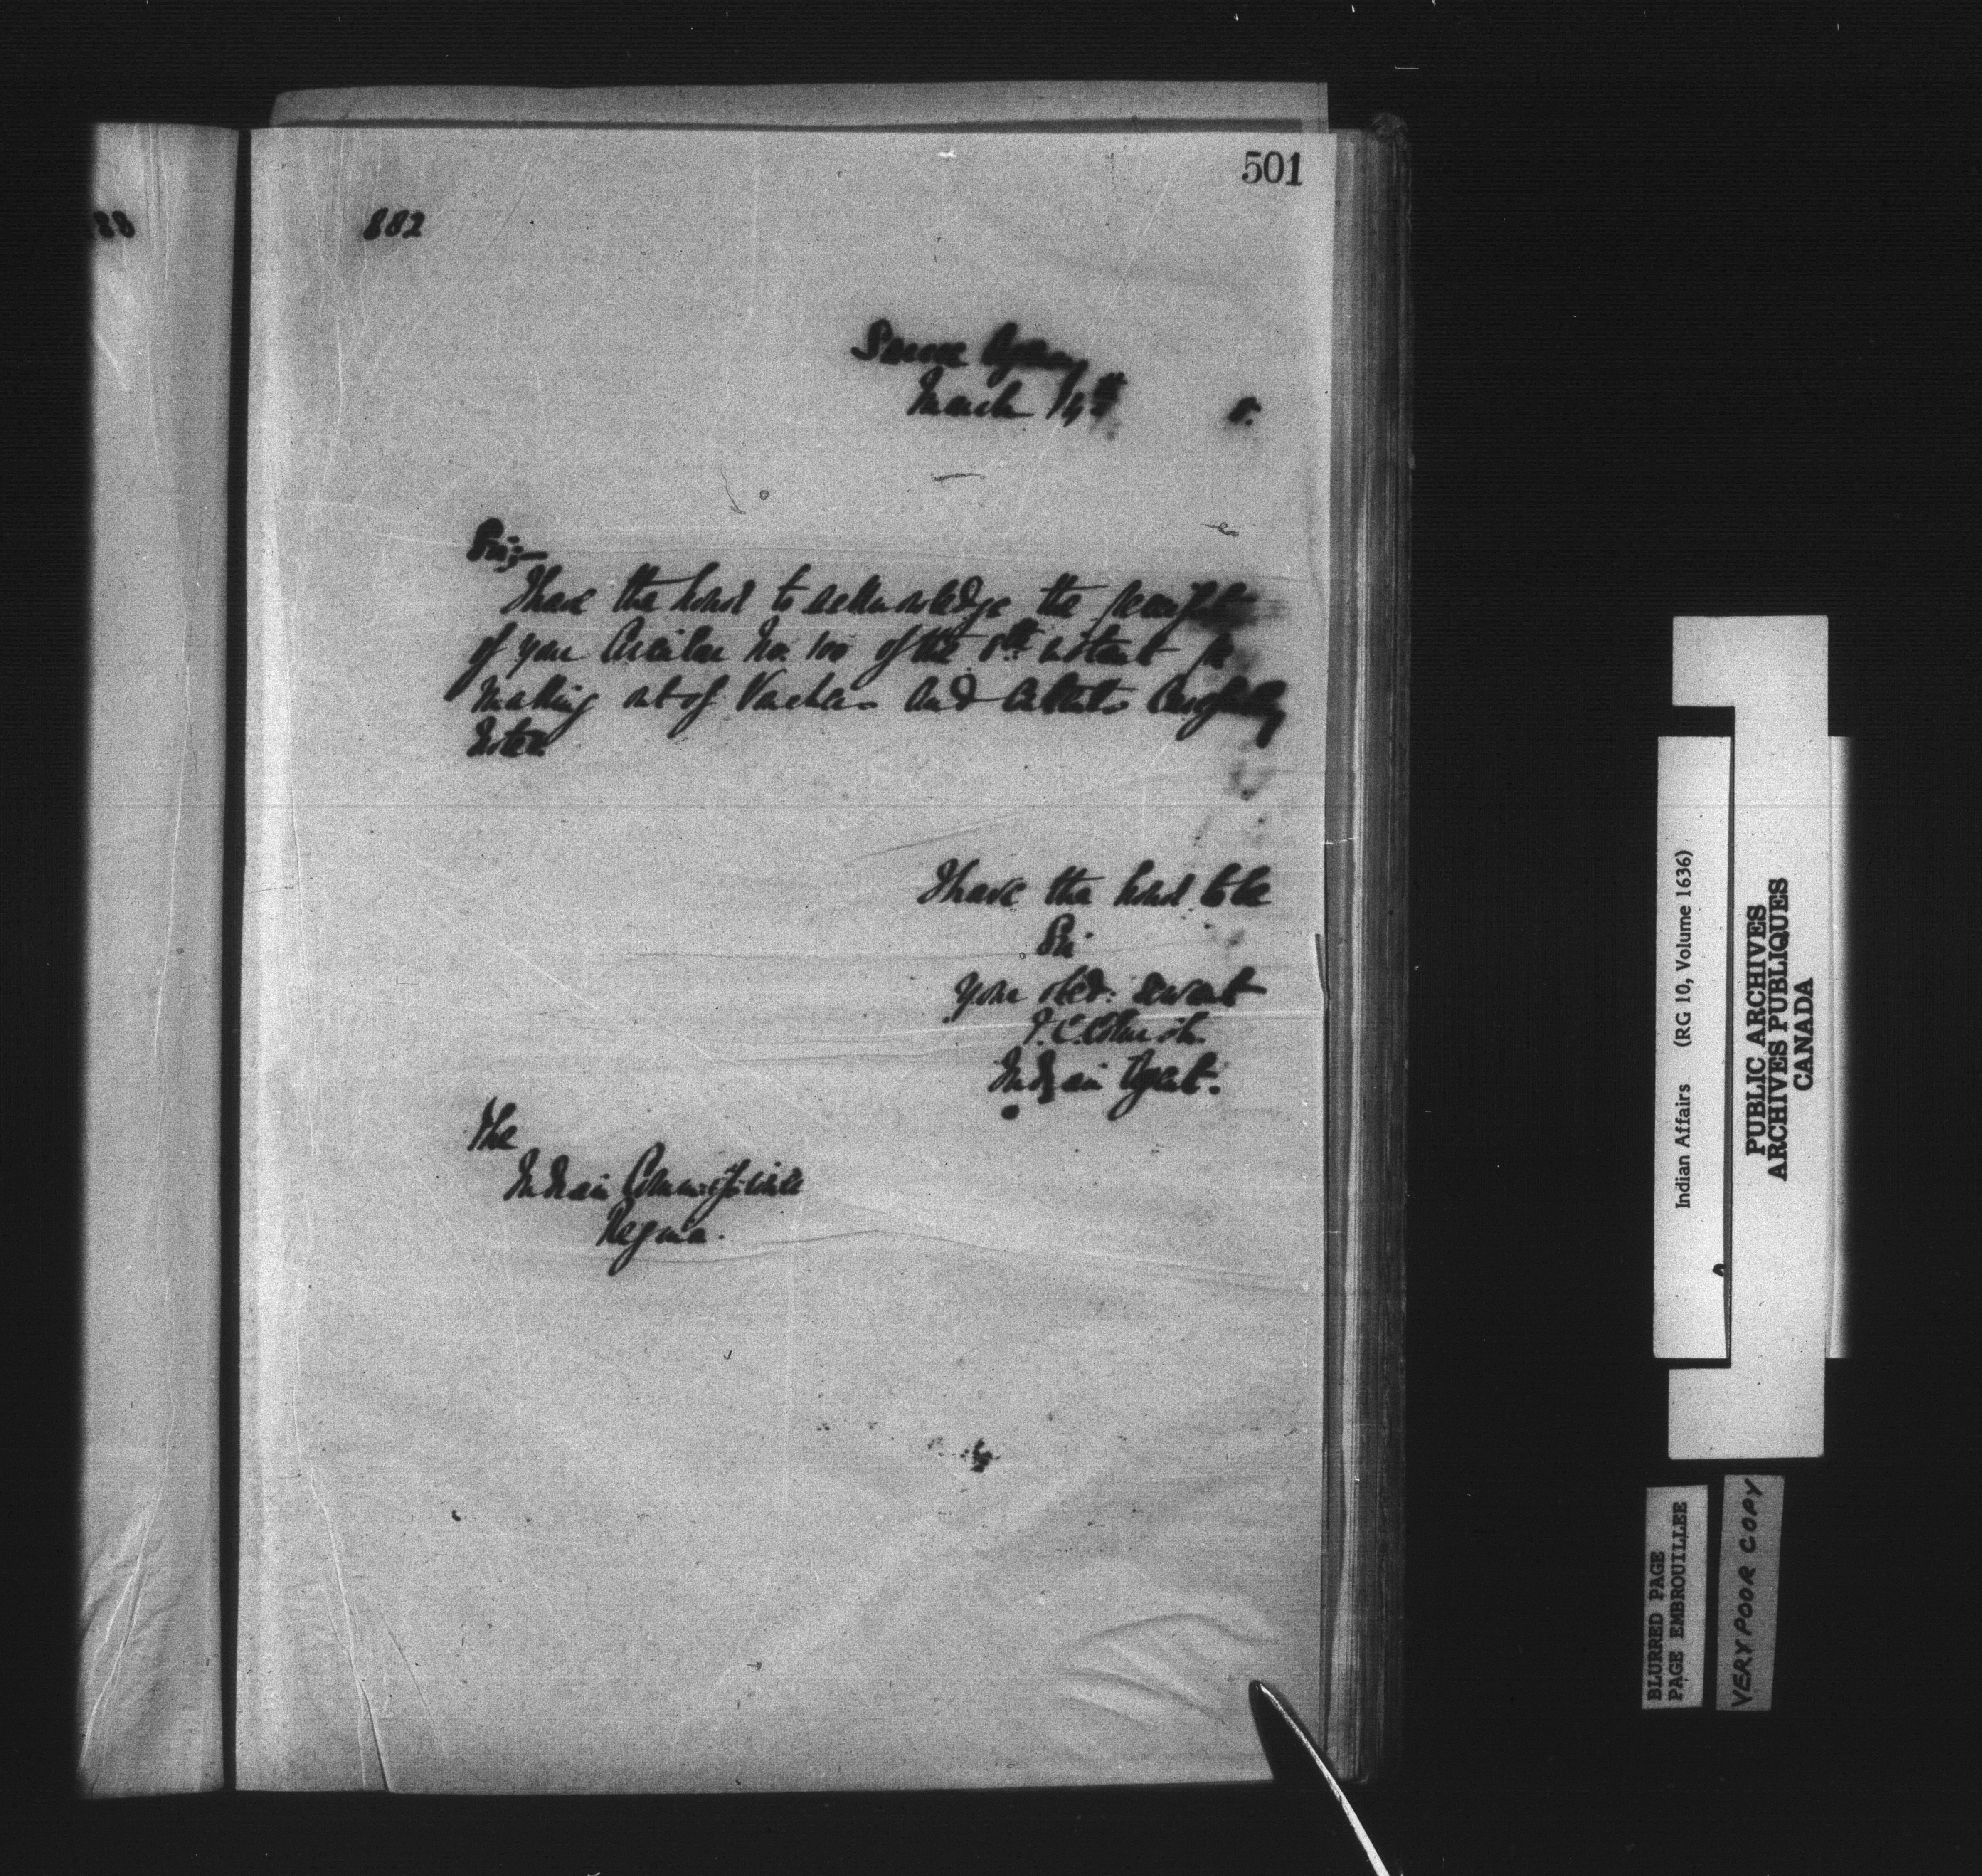 501
88
882
Sarcee Agency
March 14th 8.
Sir,
I have the honor to acknowledge the receipt
of your Circular No. 100 of the 8th instant re
making out of Vouchers and contents carefully
Noted.
I have the honor to be
Sir
Your obed. servant
Indian Agent.
The
Indian Commissioner
Regina.
Indian Affairs (RG 10, Volume 1636)
PUBLIC ARCHIVES
ARCHIVES PUBLIQUES
CANADA
BLURRED PAGE
PAGE EMBROUILLEE
VERY POOR COPY